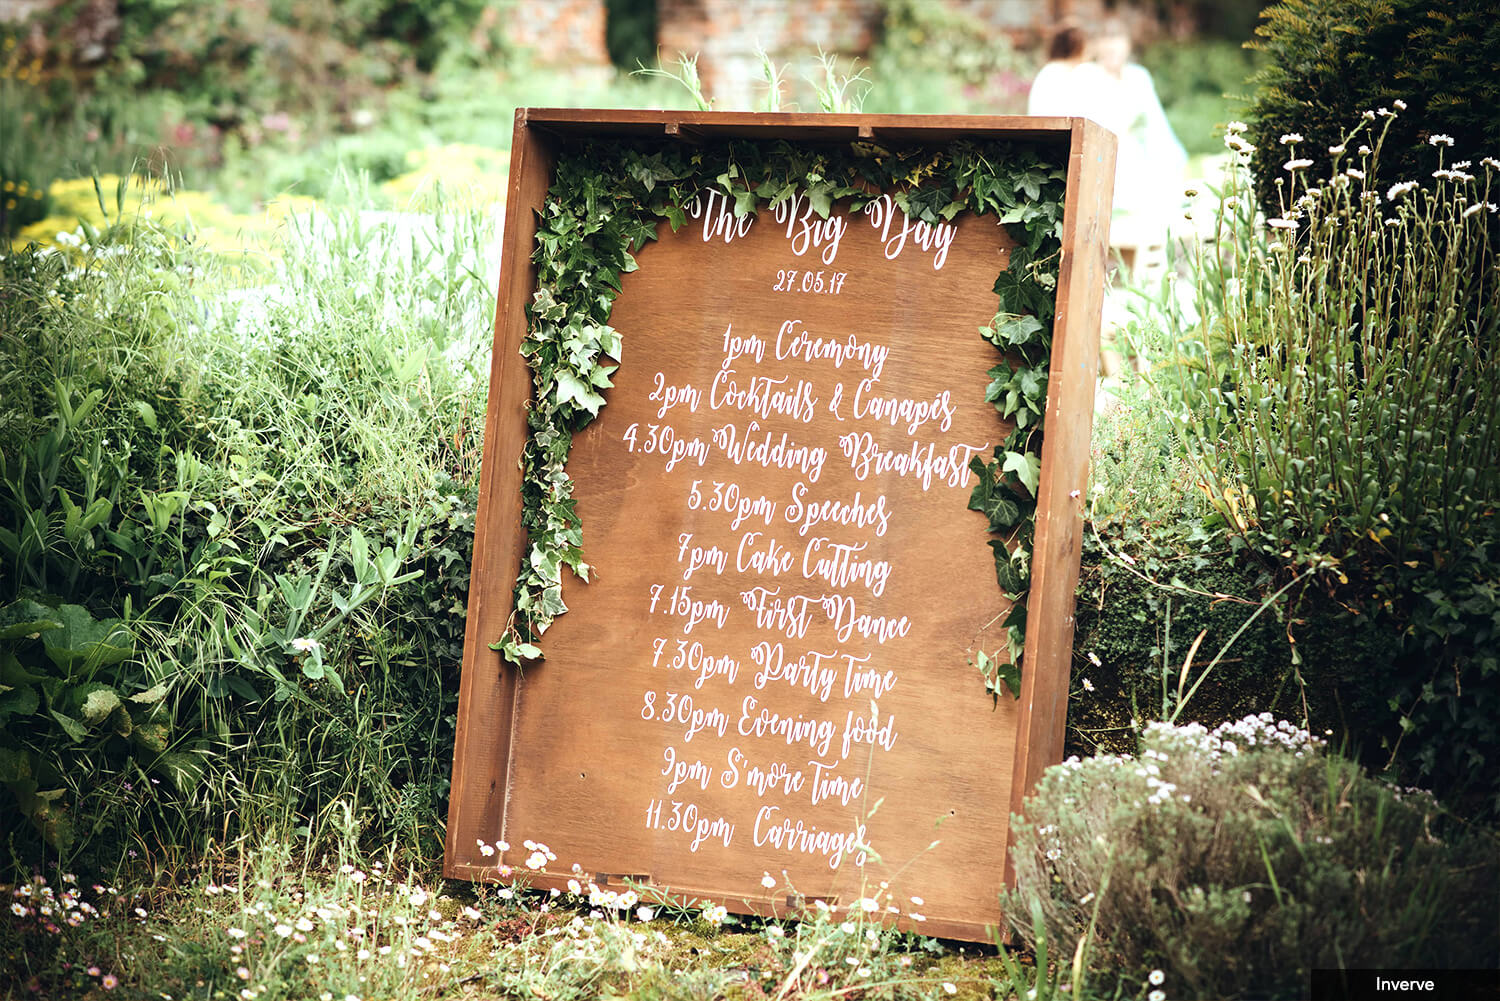 The Big Day
27.05.17
1pm Ceremony
2pm Cocktails & Canapés
4.30pm Wedding Breakfast
5.30pm Speeches
7pm Cake Cutting
7.15pm First Dance
7.30pm Party Time
8.30pm Evening food
9pm S'more Time
11.30pm Carriages
Inverve